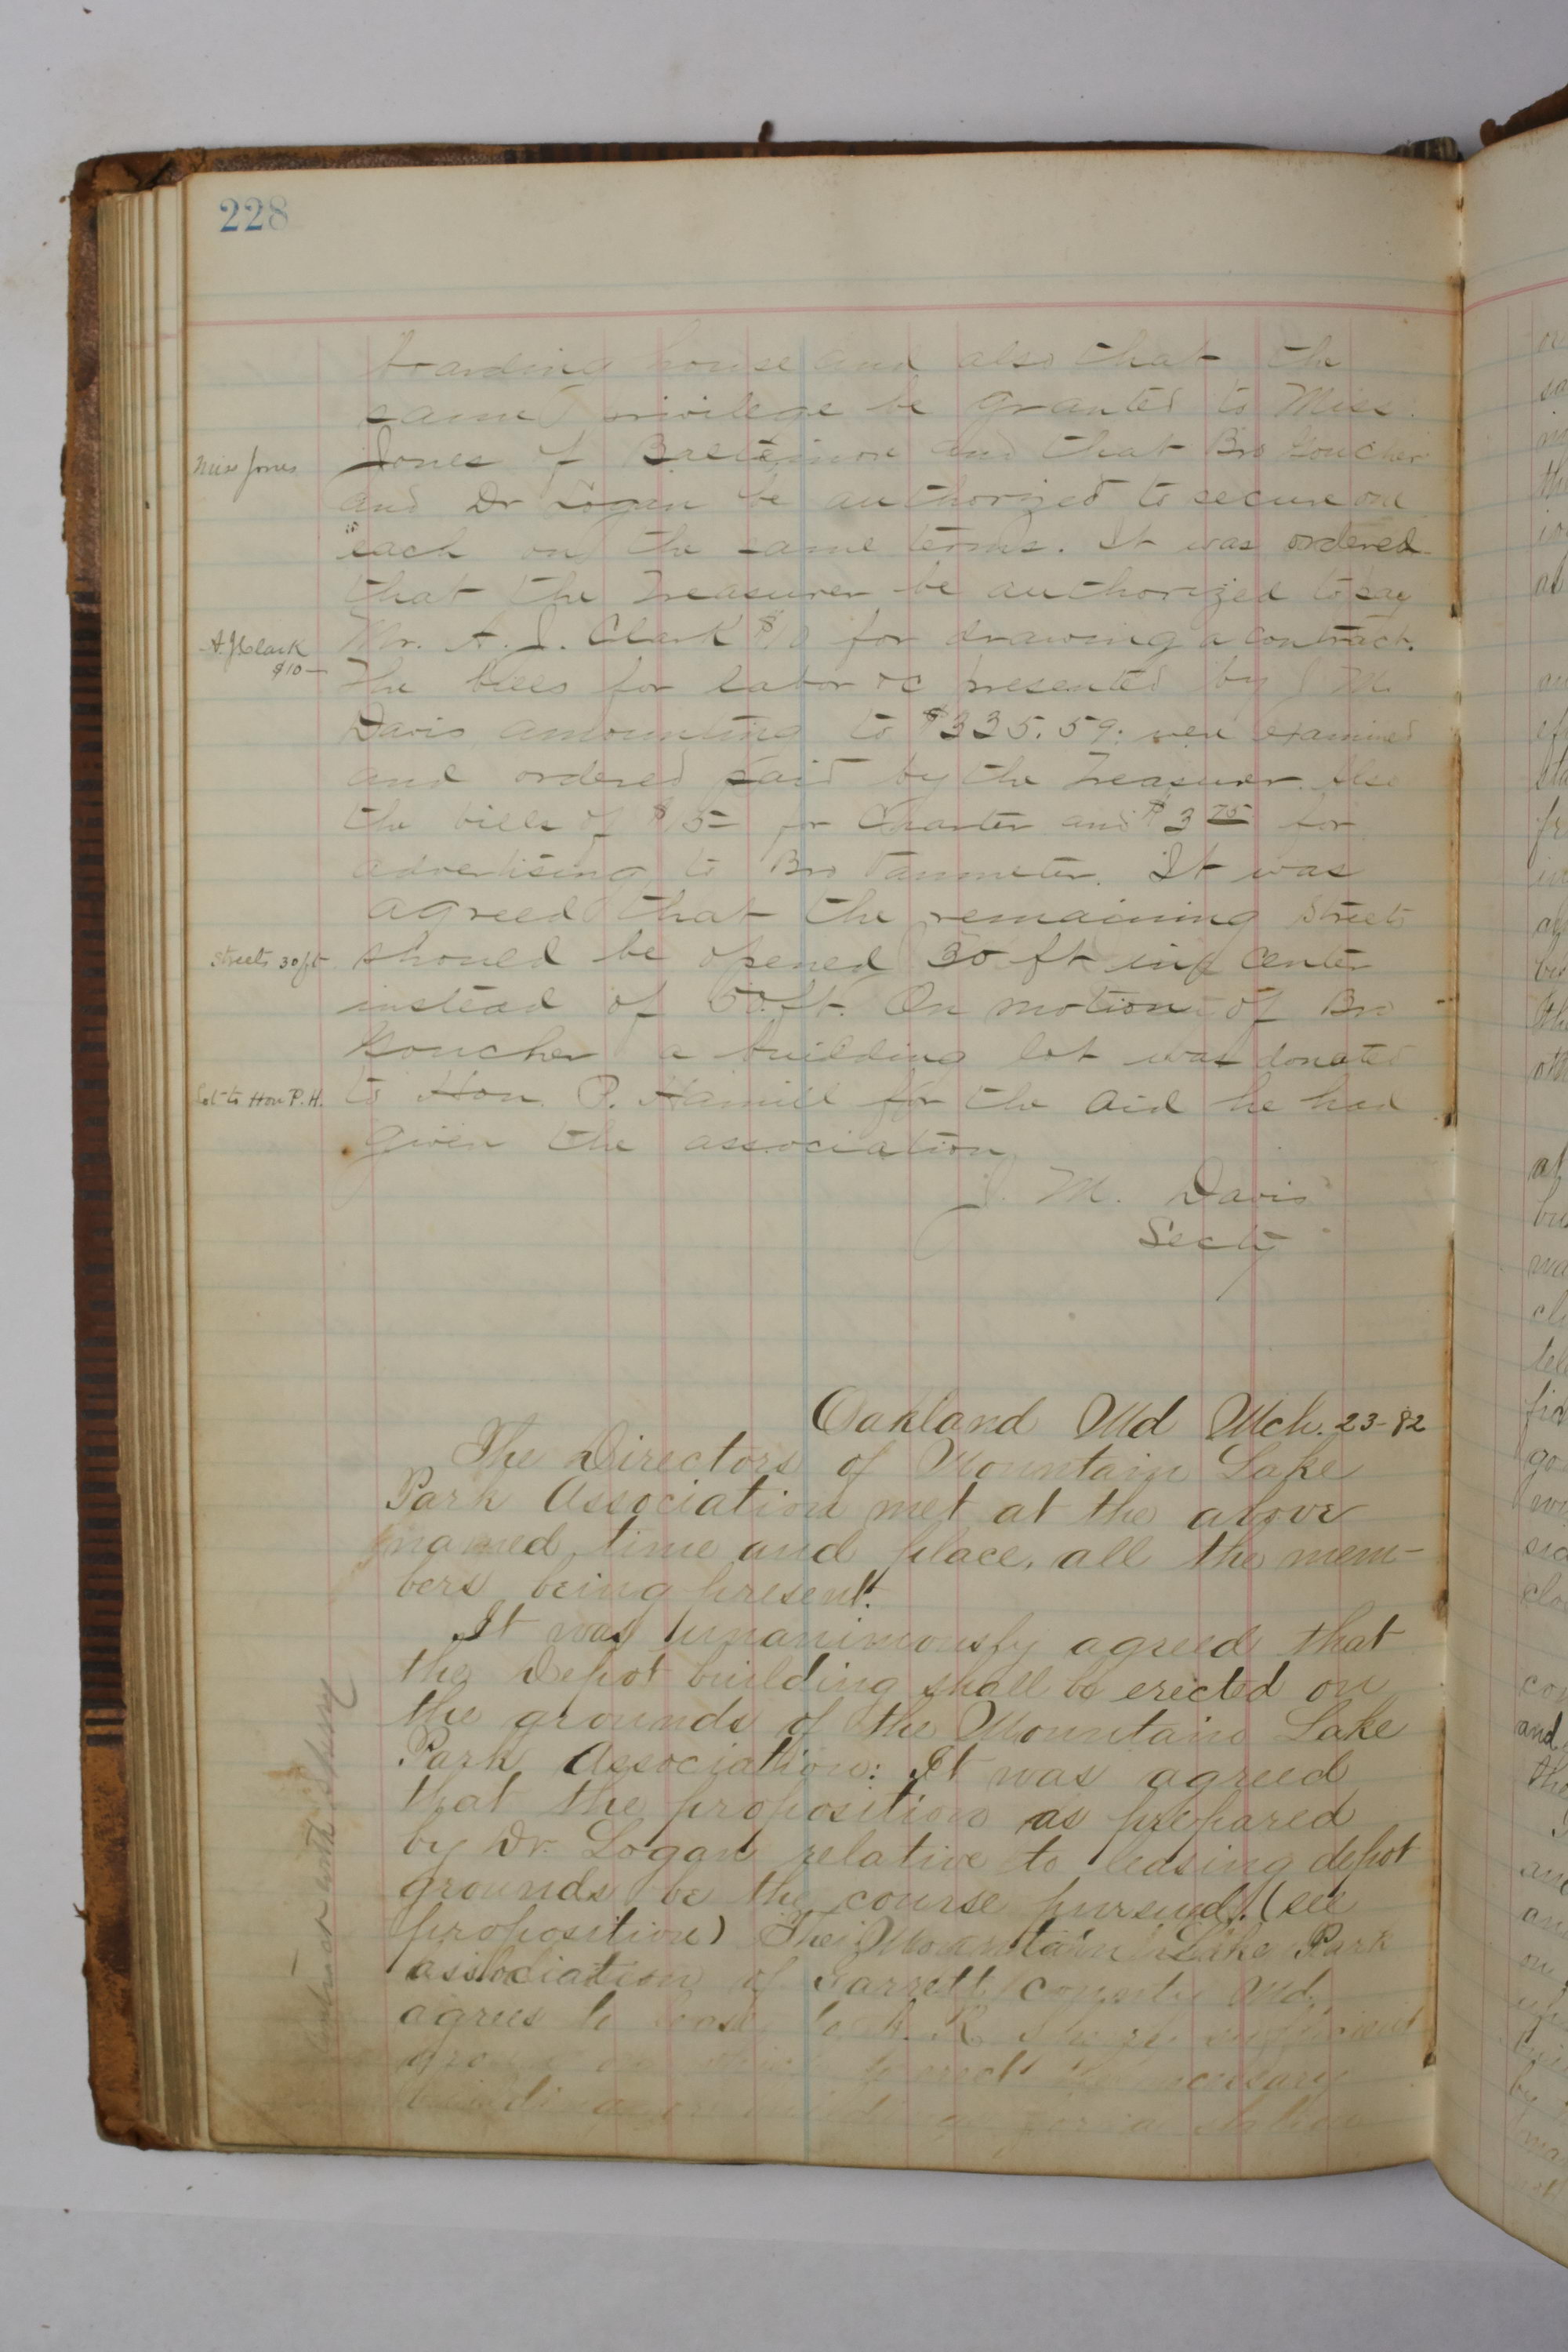 228
boarding house and also that the
same privilege be granted to Miss
Miss Jones
Jones of Baltimore and that Bro Goucher
and Dr Logan be authorized to secure one
each on the same terms. It was ordered
that the Treasurer be authorized to pay
A. J Clark
$10—
Mr. A. J. Clark $10 for drawing a contract.
The bills for labor &c presented by J M.
Davis amounting to $335.59. were examined
and ordered paid by the Treasurer. Also
the bills of $5— for Charter and $3 75 for
advertising to Bro Tanmeter. It was
agreed that the remaining Streets
Streets 30 ft
should be opened 30 ft in center
instead of 50 ft. On motion of Bro
Goucher a building lot was donated
Lot to Hon P. H.
to Hon. P. Hamill for the aid he had
given the association
J. M. Davis
Secty
Oakland Md Mch. 23-82
The Directors of Mountain Lake
Park Association met at the above
named time and place, all the mem-
bers being present.
It was unanimously agreed that
the Depot building shall be erected on
the grounds of the Mountain Lake
Park Association: It was agreed
that the proposition as prepared
by Dr. Logan relative to leasing depot
grounds be the course pursued. (see
proposition) The Mountain Lake Park
association of Garrett County Md.
agrees to lease to sufficient
to erect the necessary
buildings for a station
Contract with